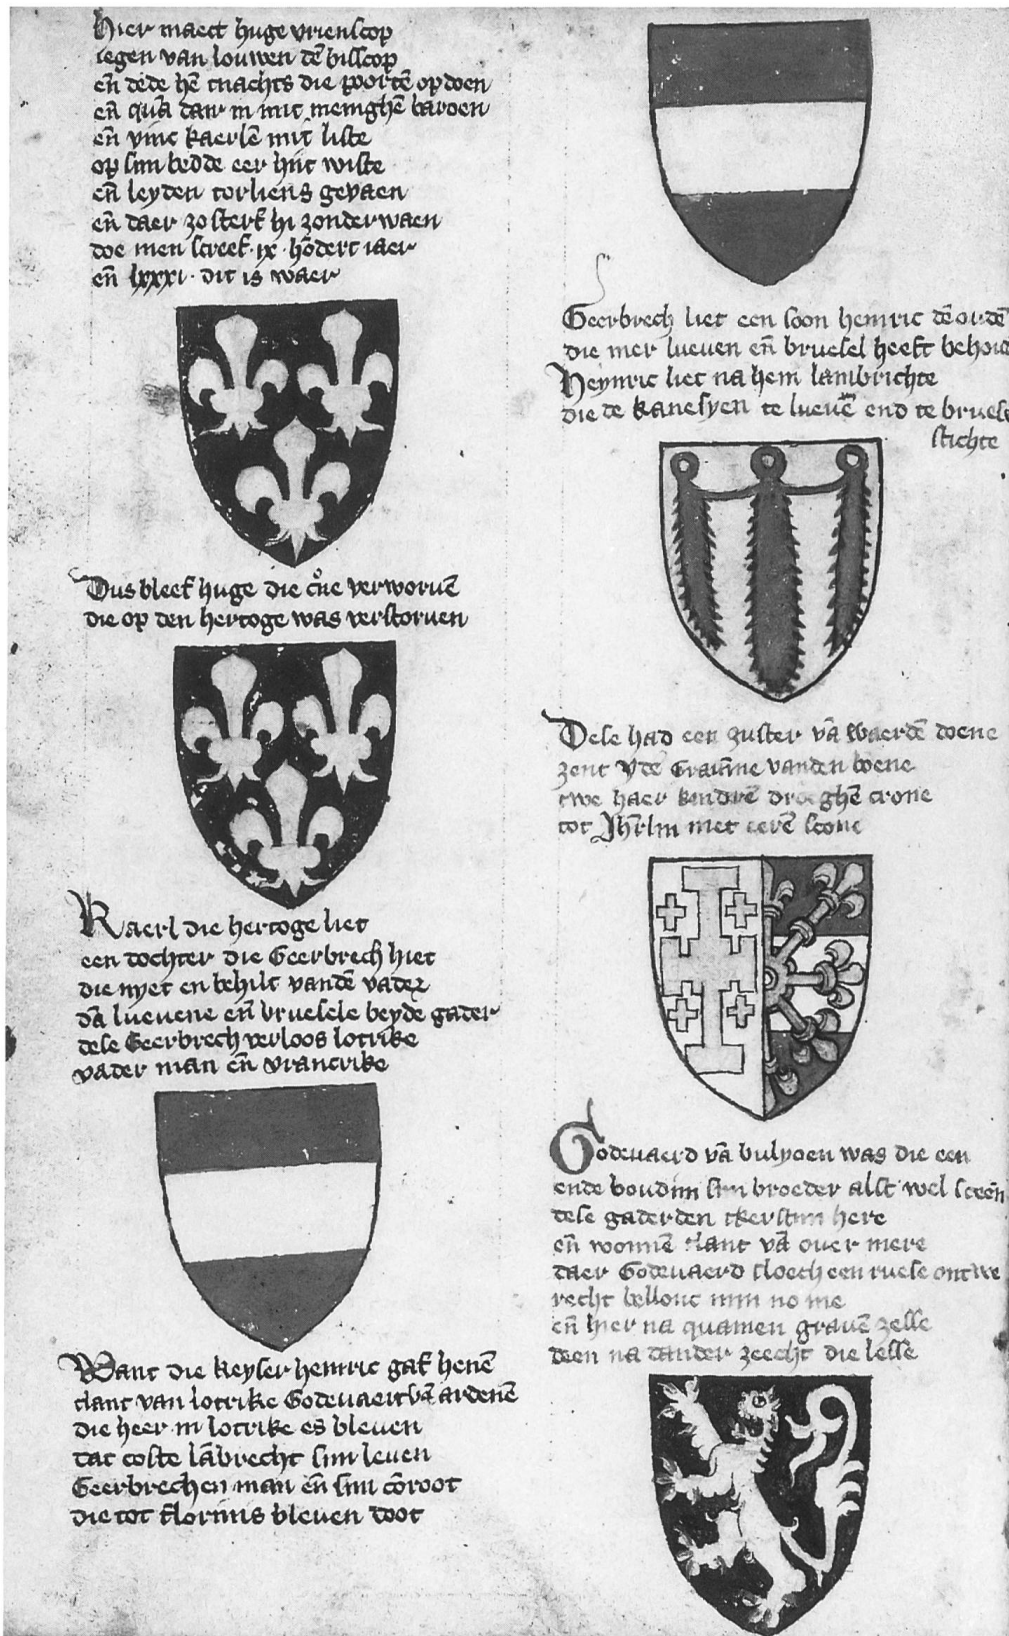 Hier maect huge vrienscop
iegen van louwen dē bisscop
en̄ dede hē tnachts die poortē op doen
en̄ quā daer in mit menighē baroen
en̄ vinc kaerlē mit liste
op sijn bedde eer hijt wiste
en̄ leyden torliens gevaen
en̄ daer zo sterf hi zonder waen
doe men screef .ix. hōdert iaer
en̄ lxxxi . dit is waer
Dus bleef huge die crōe verworvē
die op den hertoge was verstorven
Kaerl die hertoge liet
een dochter die Geerbrech hiet
die nyet en behilt vandē vader
dā luevene en̄ bruesele beyde gader
dese Geerbrech verloos lotrike
vader man en̄ vrancrike
Want die keyser heinric gaf henē
tlant van lotrike Godevaert vā ardenē
die heer in lotrike es bleven
dat coste lābrecht sijn leven
Geerbrechen man en̄ sijn cōroot
die tot florinis bleven doot
Geerbrech liet een soon heinric dē ordē
die mer lueven en̄ bruesel heeft behou
Heynric liet na hem lambrichte
die de kanesyen te luevē end te bruese
stichte
Dese had een zuster vā waerdē doene
zent Yde Gravinne vanden boene
twe haer kindrē droeghē crone
tot Jhrlm met eerē scone
Godevaerd vā bulyoen was die een
ende boudijn sijn broeder alst wel sceen
dese gaderden tkerstijn here
en̄ wonnē tlant vā over mere
daer Godevaerd sloech een ruese ontwe
recht bellonc min no me
en̄ hier na quamen gravē zesse
deen na dander zeecht die lesse